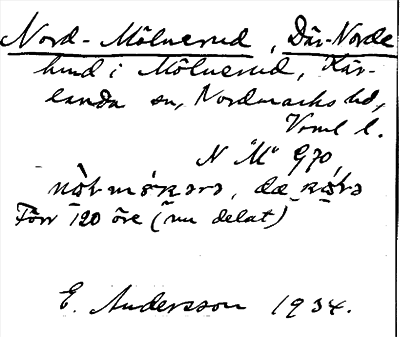 Nord-Mölnerud, Där Norde
hund i Mölnerud, Kär-
landa sn, Nordmarks hd,
Vrml l.
N "M" 970,
Förr 120 öre (nu delat)
E. Andersson 1934.